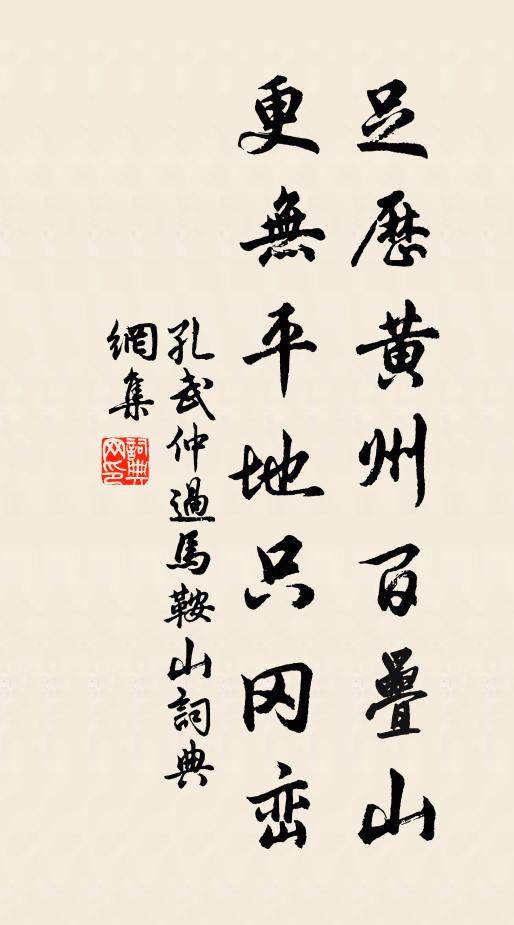 足歷黄州百疊山
更無平地只冈峦
孔武仲過馬鞍山詞典
網集
詞典網印